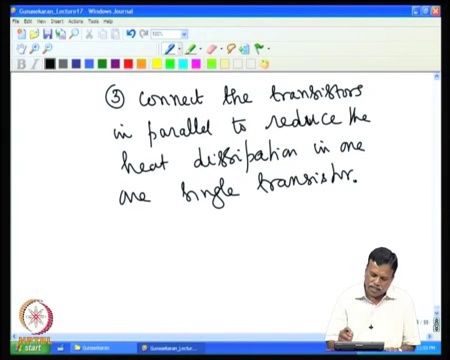 Gunasekaran_Lecture17 - Windows Journal
File Edit View Insert Actions Tools Help
100%
③ Connect the transistors
in parallel to reduce the
heat dissipation in one
one single transistor.
NPTEL
start
Gunasekaran
Gunasekaran_Lectu...